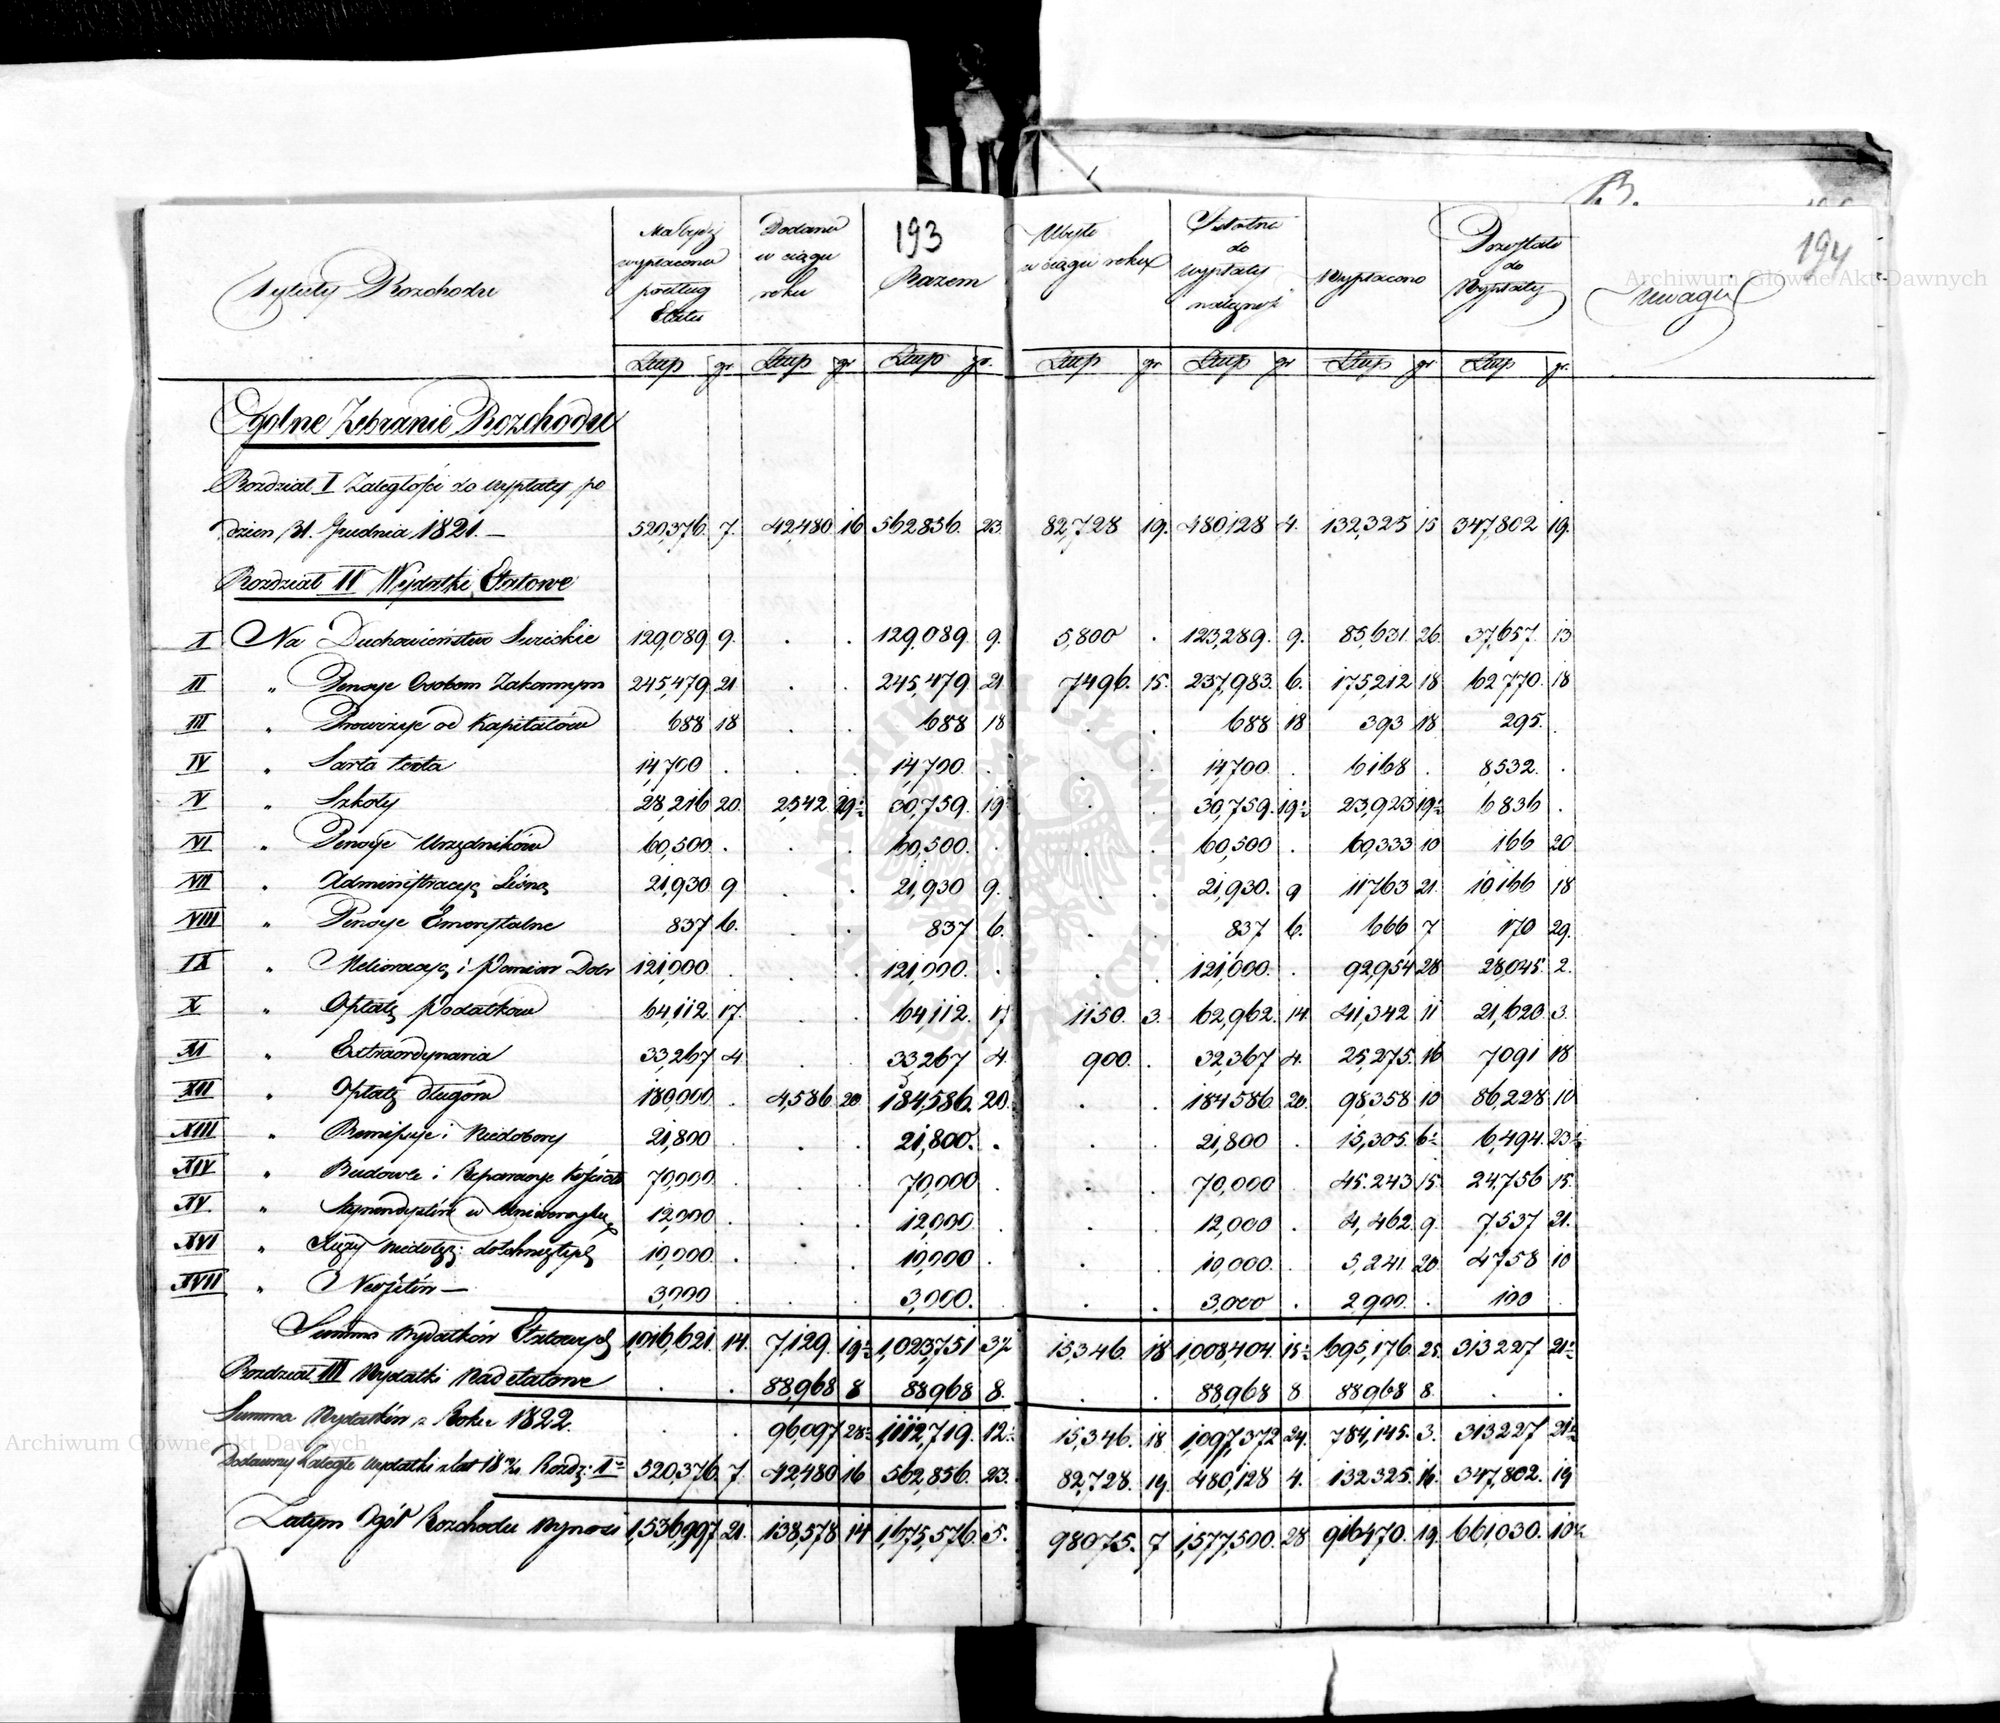 193
194
B.
Tytuły Rozchodu
Ma być wypłacono podług Etatu
Dodano w ciągu roku
Razem
Ubyło w ciągu roku
Istotna do wypłaty należność
Wypłacono
Pozostało do Wypłaty
Uwagi
Złup gr Złup gr Złup gr. Złup gr Złup gr Złup gr Złup gr.
Ogolne Zebranie Rozchodu
Rozdział I Zaległości do wypłaty po
dzien 31. Grudnia 1821. — 520,376. 7. 42,480 16 562,856. 23. 82,728 19. 480,128 4. 132,325 15 347,802 19.
Rozdział II Wydatki Etatowe
I Na Duchowieństwo Swieckie 129,089 9. . . 129,089. 9. 5,800 . 123,289. 9. 85,631 26 37,657. 13
II " Pensye Osobom Zakonnym 245,479 21 . . 245,479 21 7496. 15. 237,983. 6. 175,212 18 62,770. 18
III " Prowizye od Kapitałów 688 18 . . 688 18 . . 688 18 393 18 295. .
IV " Sarta tecta 14,700 . . . 14,700 . . . 14,700 . 6168 . 8,532. .
V " Szkoły 28,216 20. 2,542. 29½ 30,759. 19½ . . 30,759. 19½ 23,923 19½ 6836 .
VI " Pensye Urzędników 60,500. . . . 60,500. . . . 60,500 . 60,333 10 166 20
VII " Administracyą Leśną 21,930 9 . . 21,930 9. . . 21,930. 9 11763 21. 10,166 18
VIII " Pensye Emerytalne 837 6. . . 837 6. . . 837 6. 666 7 170 29.
IX " Melioracyą i Pomiar Dobr 121,000. . . . 121,000. . . . 121,000. . 92,954 28 28,045. 2.
X " Opłatę Podatków 64,112 17. . . 64,112. 17 1150. 3. 62,962. 14 41,342 11 21,620 3.
XI " Extraordynaria 33,267 4 . . 33,267 4. 900. . 32,367 4. 25,275. 16 7091 18
XII " Opłatę długów 180,000 . 4,586 20 184,586. 20. . . 184,586 20. 98,358 10 86,228 10
XIII " Remissye i Niedobory 21,800 . . . 21,800. . . . 21,800 . 15,305. 6½ 6,494. 23½
XIV " Budowle i Reparacye Kościoł 70,000 . . . 70,000 . . . 70,000 . 45,243 15. 24,756 15.
XV " Stypendystów w Uniwersyte 12,000 . . . 12,000 . . . 12,000 . 4,462 9. 7,537 21.
XVI " 10,000. . . . 10,000 . . . 10,000. . 5,241. 20 4758 10
XVII " Neofitów — 3,000 . . . 3,000. . . . 3,000 . 2,900. . 100 .
Summa Wydatków Etatowych 1,016,621. 14. 7,129. 19½ 1,023,751 3½ 15,346. 18 1,008,404. 15½ 695,176. 25 313,227 21½
Rozdział III Wydatki Nadetatowe . . 88,968 8 88,968 8. . . 88,968 8 88,968 8. . .
Summa Wydatków z Roku 1822. . . 96,097 28½ 1,112,719. 12½ 15,346. 18 1,097,372 24. 784,145. 3. 313,227 21½
Dodawszy Zaległe wydatki z lat 18 Rozdz: 520,376 7. 42,480 16 562,856. 23. 82,728. 19. 480,128 4. 132,325. 16. 347,802. 19
Zatym Ogół Rozchodu wynosi 1,536,997 21. 138,578 14 1,675,576. 5. 98,075. 7 1,577,500. 28 916,470. 19. 661,030. 10½
Archiwum Główne Akt Dawnych
Archiwum Główne Akt Dawnych